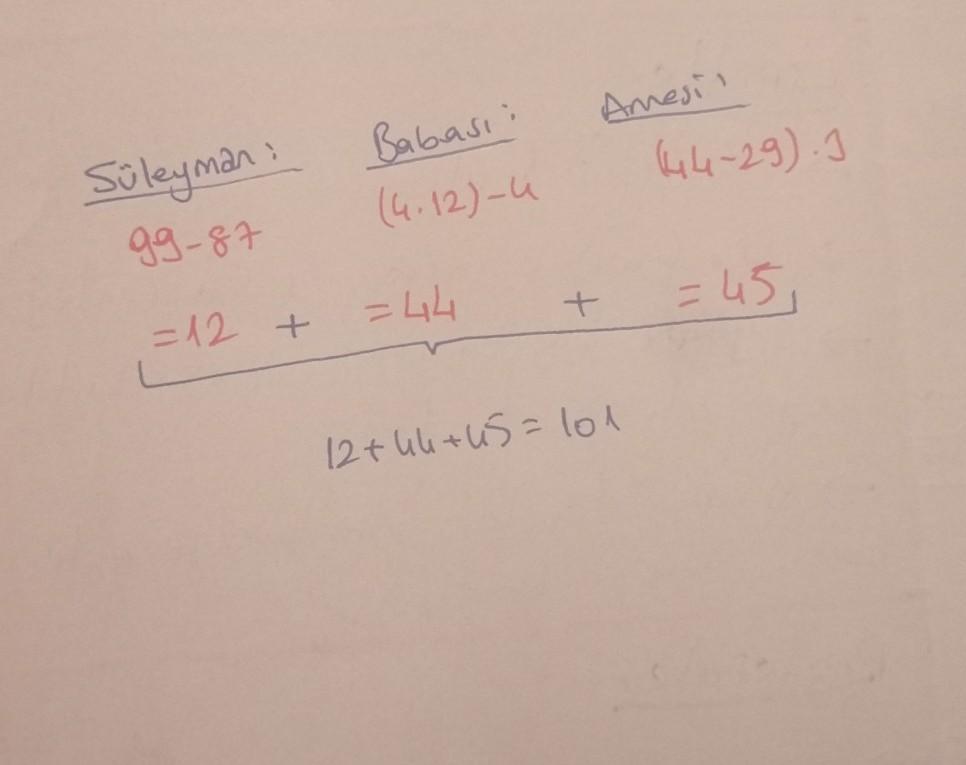 Süleyman: Babası: Annesi:
99-87 (4.12)-4 (44-29).3
=12 + =44 + =45
12+44+45=101